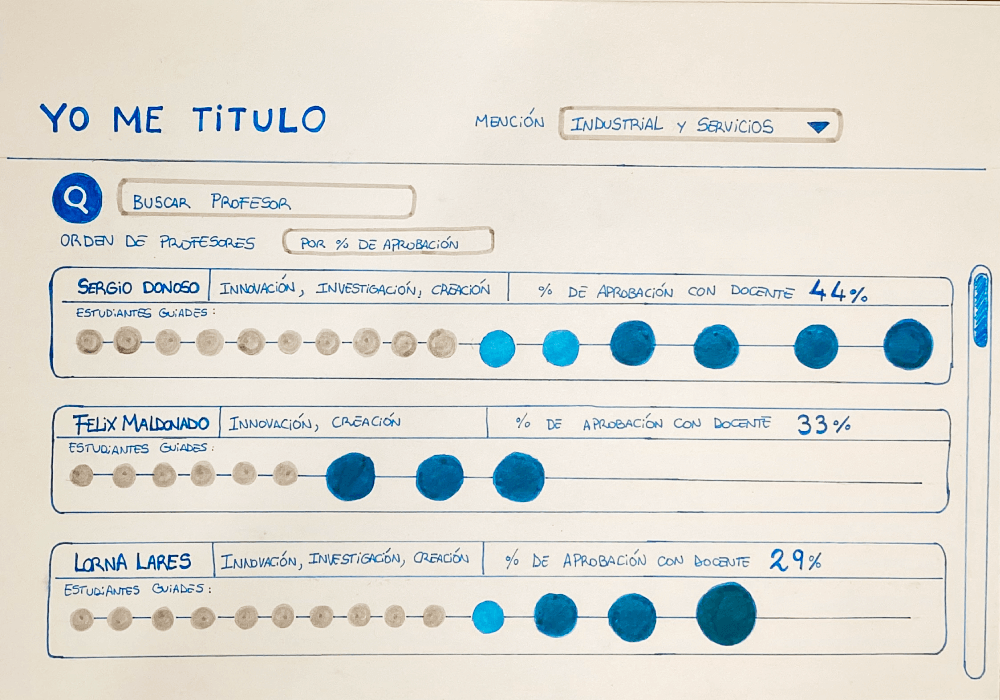 YO ME TITULO
MENCIÓN INDUSTRIAL Y SERVICIOS
BUSCAR PROFESOR
ORDEN DE PROFESORES POR % DE APROBACIÓN
SERGIO DONOSO INNOVACIÓN, INVESTIGACIÓN, CREACIÓN % DE APROBACIÓN CON DOCENTE 44%
ESTUDIANTES GUIADES:
FELIX MALDONADO INNOVACIÓN, CREACIÓN % DE APROBACIÓN CON DOCENTE 33%
ESTUDIANTES GUIADES:
LORNA LARES INNOVACIÓN, INVESTIGACIÓN, CREACIÓN % DE APROBACIÓN CON DOCENTE 29%
ESTUDIANTES GUIADES: